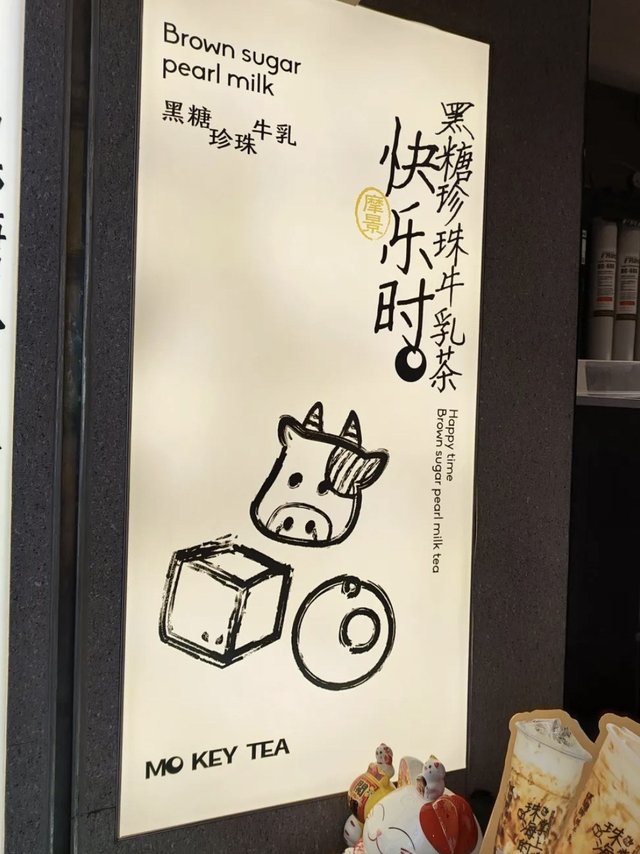 Brown sugar
pearl milk
黑糖珍珠牛乳
黑糖珍珠牛乳茶
快乐时
摩景
Happy time
Brown sugar pearl milk tea
MO KEY TEA